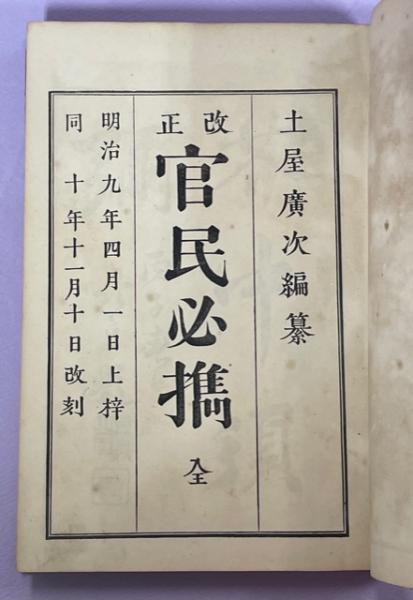 土屋廣次編纂
改正
官民必携 全
明治九年四月一日上梓
同十年十一月十日改刻